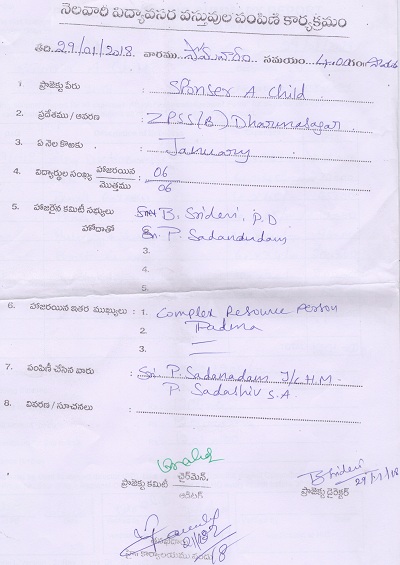 నెలవారీ విద్యావసర వస్తువుల పంపిణి కార్యక్రమం
తేది: 29/01/2018. వారము సోమవారం.. సమయం 4.00గం॥
1. ప్రాజెక్టు పేరు : Sponser A Child
2. ప్రదేశము / ఆవరణ : ZPSS(B) Dharmasagar
3. ఏ నెల కొఱకు : January
4. విద్యార్థుల సంఖ్య హాజరయిన : 06
మొత్తము 06
5. హాజరైన కమిటీ సభ్యులు Smt B. Sridevi, P.D
హోదాతో Sri. P. Sadanandam
3.
4.
5.
6. హాజరయిన ఇతర ముఖ్యులు : 1. Complex Resource Person
2. Padma
3. —
7. పంపిణీ చేసిన వారు : Sri P. Sadanadam I/c H.M.
P. Sadashiv S.A.
8. వివరణ / సూచనలు :
ప్రాజెక్టు కమిటీ చైర్‌మెన్,
ఆడిటర్
B Sridevi
29/1/18
ప్రాజెక్టు డైరెక్టర్